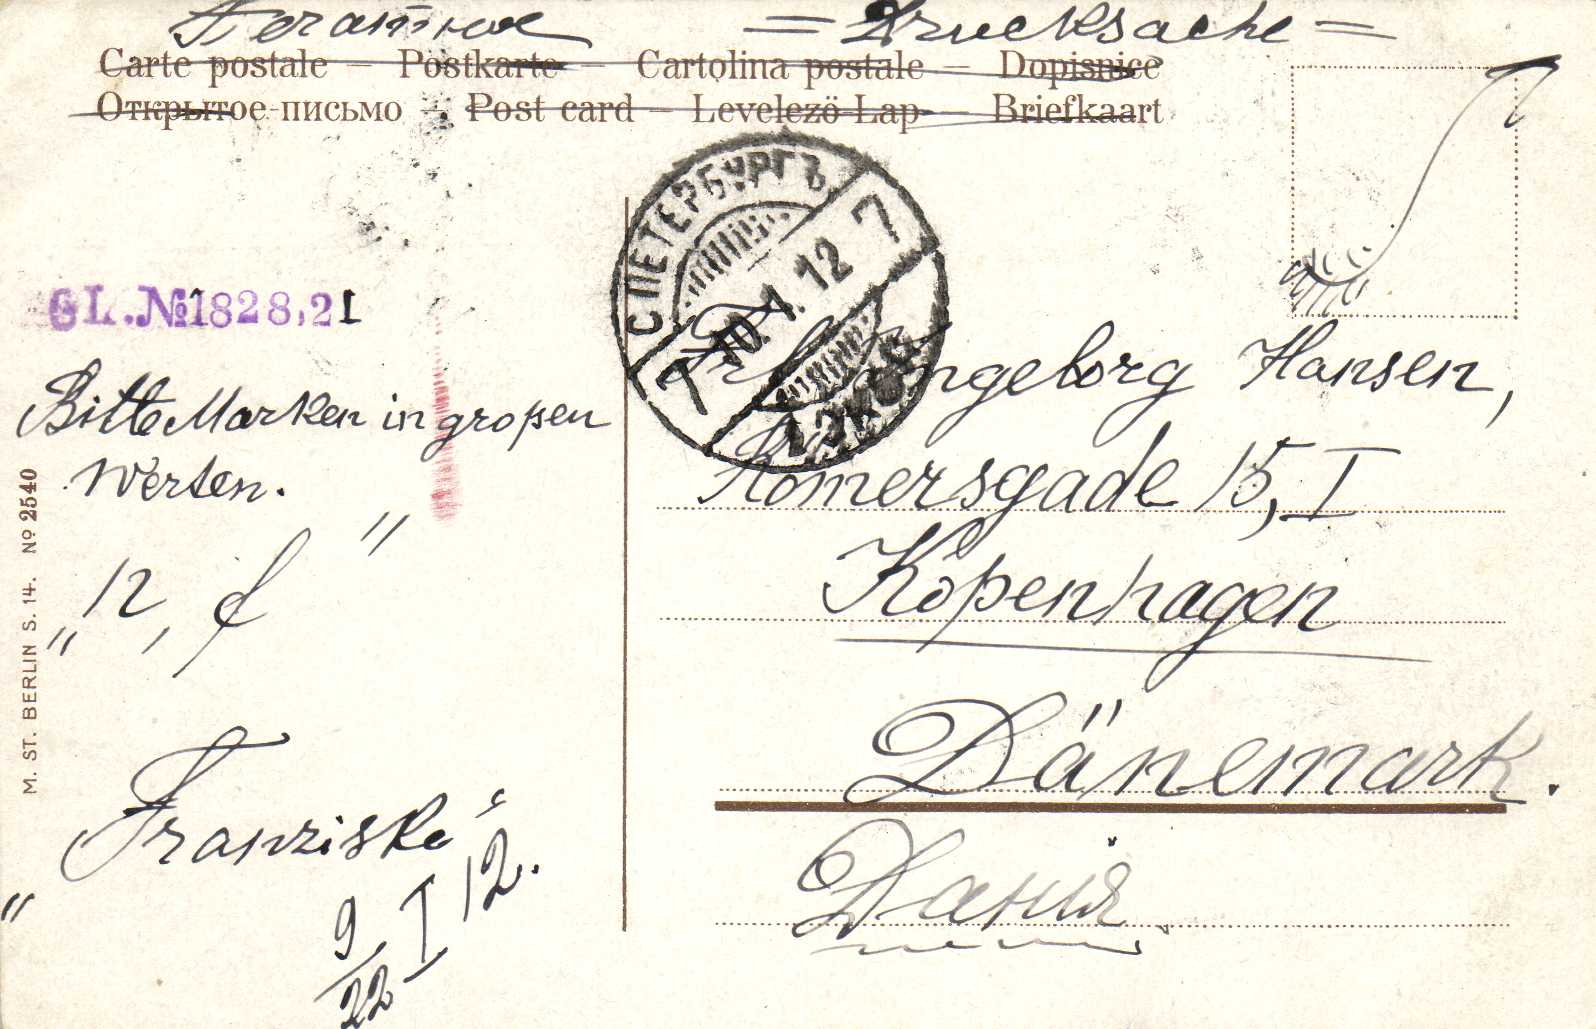 Печатное = Drucksache =
Carte postale – Postkarte – Cartolina postale – Dopisnice
Открытое письмо – Post card – Levelezö-Lap – Briefkaart
С.ПЕТЕРБУРГЪ
7
10.1.12
7
GL.№1828,21
Bitte Marken in großen
Werten.
Franziska"
9/22 I 12.
Frl. Ingeborg Hansen,
Romersgade 15, I
Kopenhagen
Dänemark.
Данія
M. ST. BERLIN S. 14. № 2540